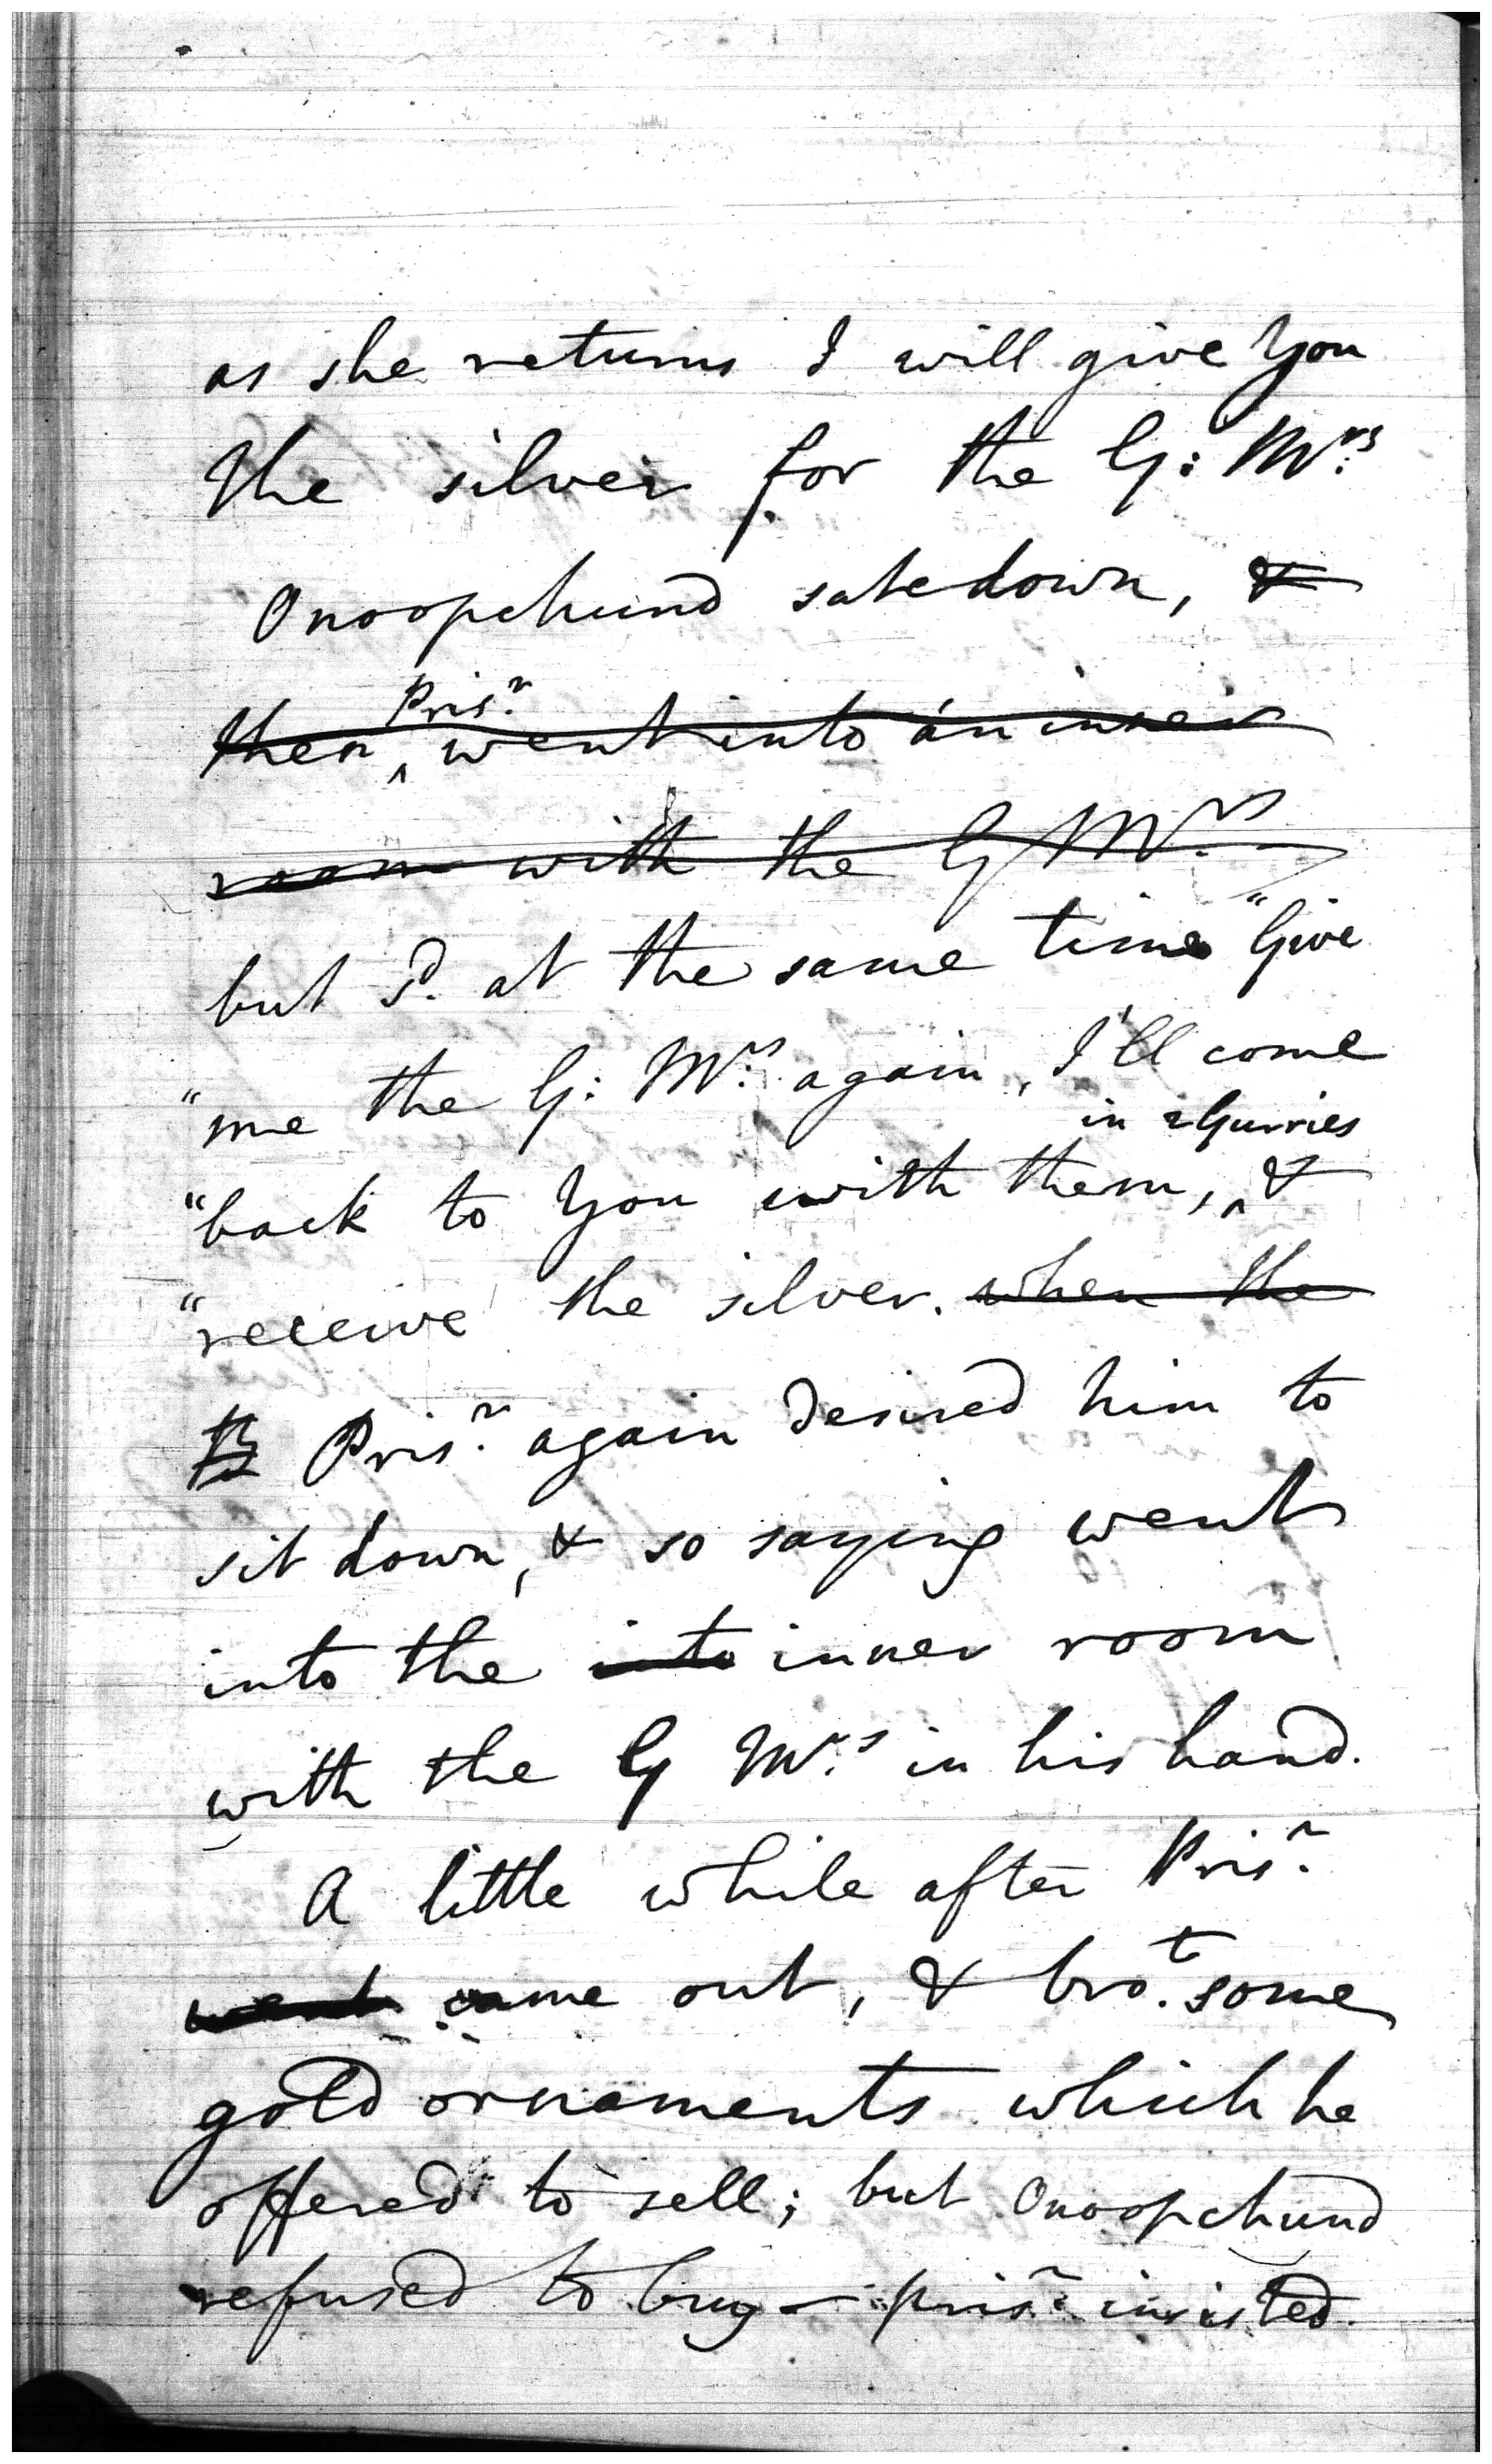 as she returns I will give You
the silver for the G: Mrs.
Onoopchund sate down, &
Prisr.
then, went into an inner
room with the G Mrs.
but Sd. at the same time "Give
"me the G: Mrs. again, I'll come
in 2 Gurries
"back to You with them, &
"receive the silver. when the
Prisr. again desired him to
sit down, & so saying went
into the into inner room
with the G Mrs. in his hand.
A little while after Prisr.
went came out, & brot. some
gold ornaments which he
offered to sell; but Onoopchund
refused to buy – prisr. insisted.